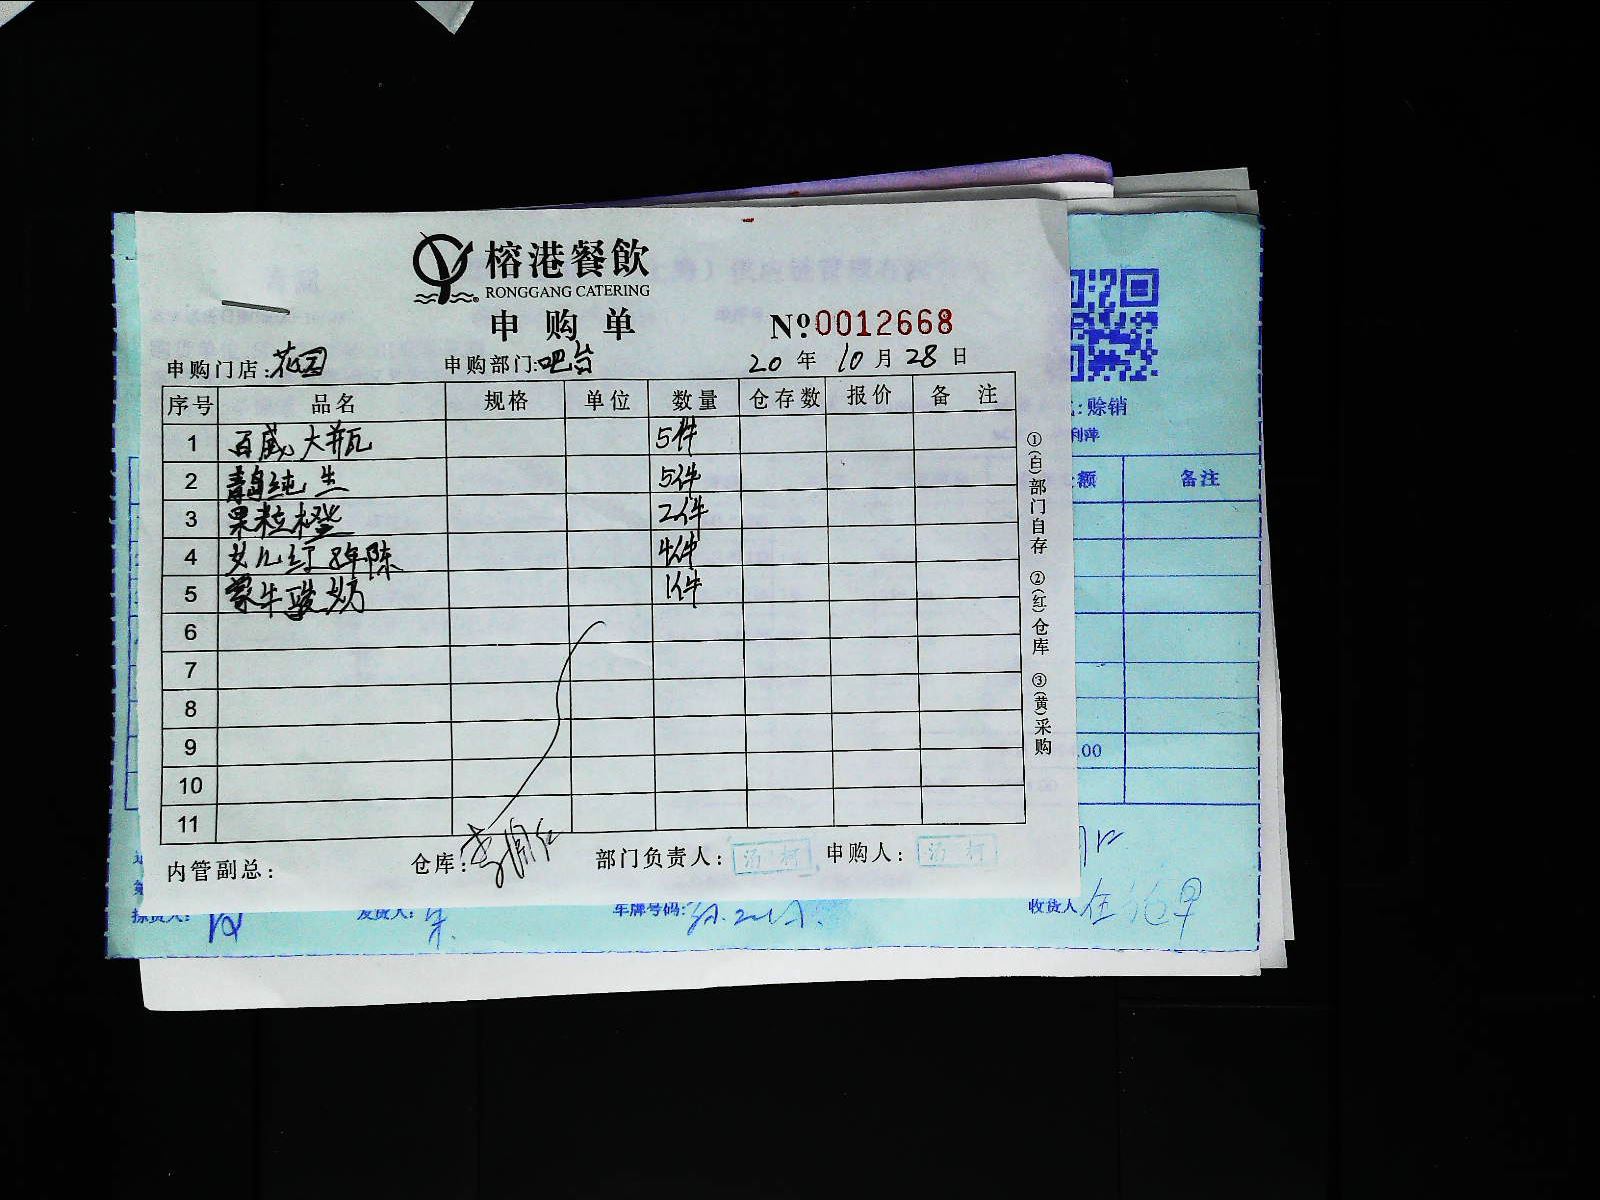 榕港餐飲
RONGGANG CATERING
申购单 №0012668
申购门店:花园 申购部门:吧台 20年10月28日
序号 品名 规格 单位 数量 仓存数 报价 备注
1 百威大瓶 5件
2 青岛纯生 5件
3 果粒橙 2件
4 女儿红8年陈 4件
5 蒙牛酸奶 1件
6
7
8
9
10
11
内管副总: 仓库: 部门负责人:汤柯 申购人:汤柯
①(白)部门自存 ②(红)仓库 ③(黄)采购
:赊销
利萍
额 备注
.00
发货人: 车牌号码: 收货人